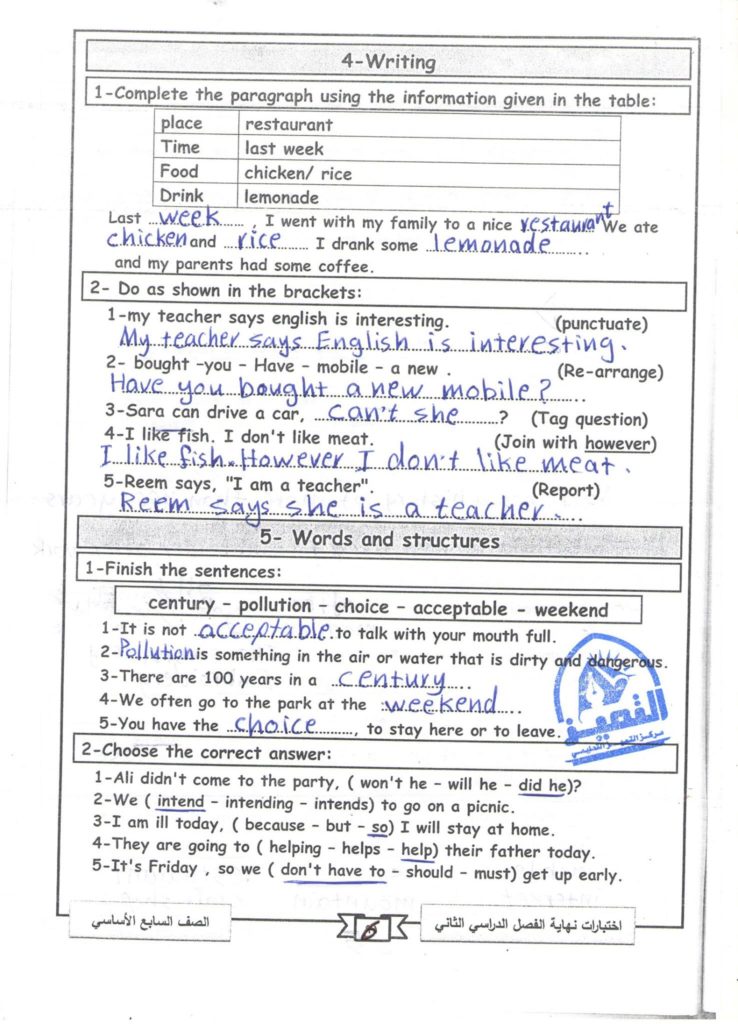 4-Writing
1-Complete the paragraph using the information given in the table:
place restaurant
Time last week
Food chicken/ rice
Drink lemonade
Last ...week......, I went with my family to a nice restaurant We ate
chicken and ...rice......... I drank some ..lemonade.........
and my parents had some coffee.
2- Do as shown in the brackets:
1-my teacher says english is interesting. (punctuate)
My teacher says English is interesting.
2- bought -you - Have - mobile - a new . (Re-arrange)
Have you bought a new mobile?
3-Sara can drive a car, ...can't she.........? (Tag question)
4-I like fish. I don't like meat. (Join with however)
I like fish. However I don't like meat.
5-Reem says, "I am a teacher". (Report)
Reem says she is a teacher.
5- Words and structures
1-Finish the sentences:
century - pollution - choice - acceptable - weekend
1-It is not .acceptable. to talk with your mouth full.
2-Pollution is something in the air or water that is dirty and dangerous.
3-There are 100 years in a ..century.....
4-We often go to the park at the ..weekend...
5-You have the ..choice..........., to stay here or to leave.
القميز
مركز التميز التعليمي
2-Choose the correct answer:
1-Ali didn't come to the party, ( won't he - will he - did he)?
2-We ( intend - intending - intends) to go on a picnic.
3-I am ill today, ( because - but - so) I will stay at home.
4-They are going to ( helping - helps - help) their father today.
5-It's Friday , so we ( don't have to - should - must) get up early.
الصف السابع الأساسي 6 اختبارات نهاية الفصل الدراسي الثاني